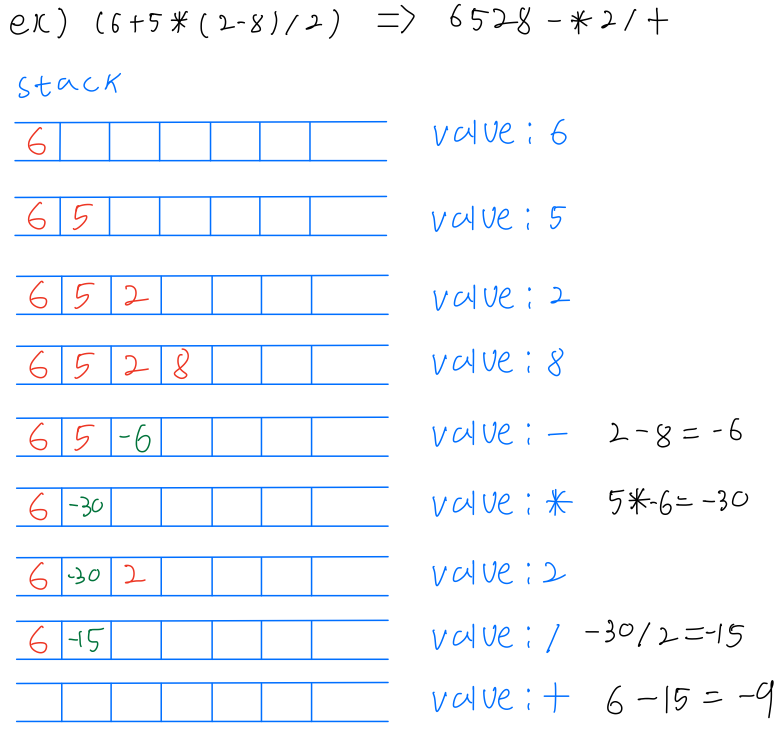 ex) (6+5*(2-8)/2) => 6528-*2/+
stack
6 value: 6
6 5 value: 5
6 5 2 value: 2
6 5 2 8 value: 8
6 5 -6 value: - 2-8=-6
6 -30 value: * 5*-6=-30
6 -30 2 value: 2
6 -15 value: / -30/2=-15
value: + 6-15=-9